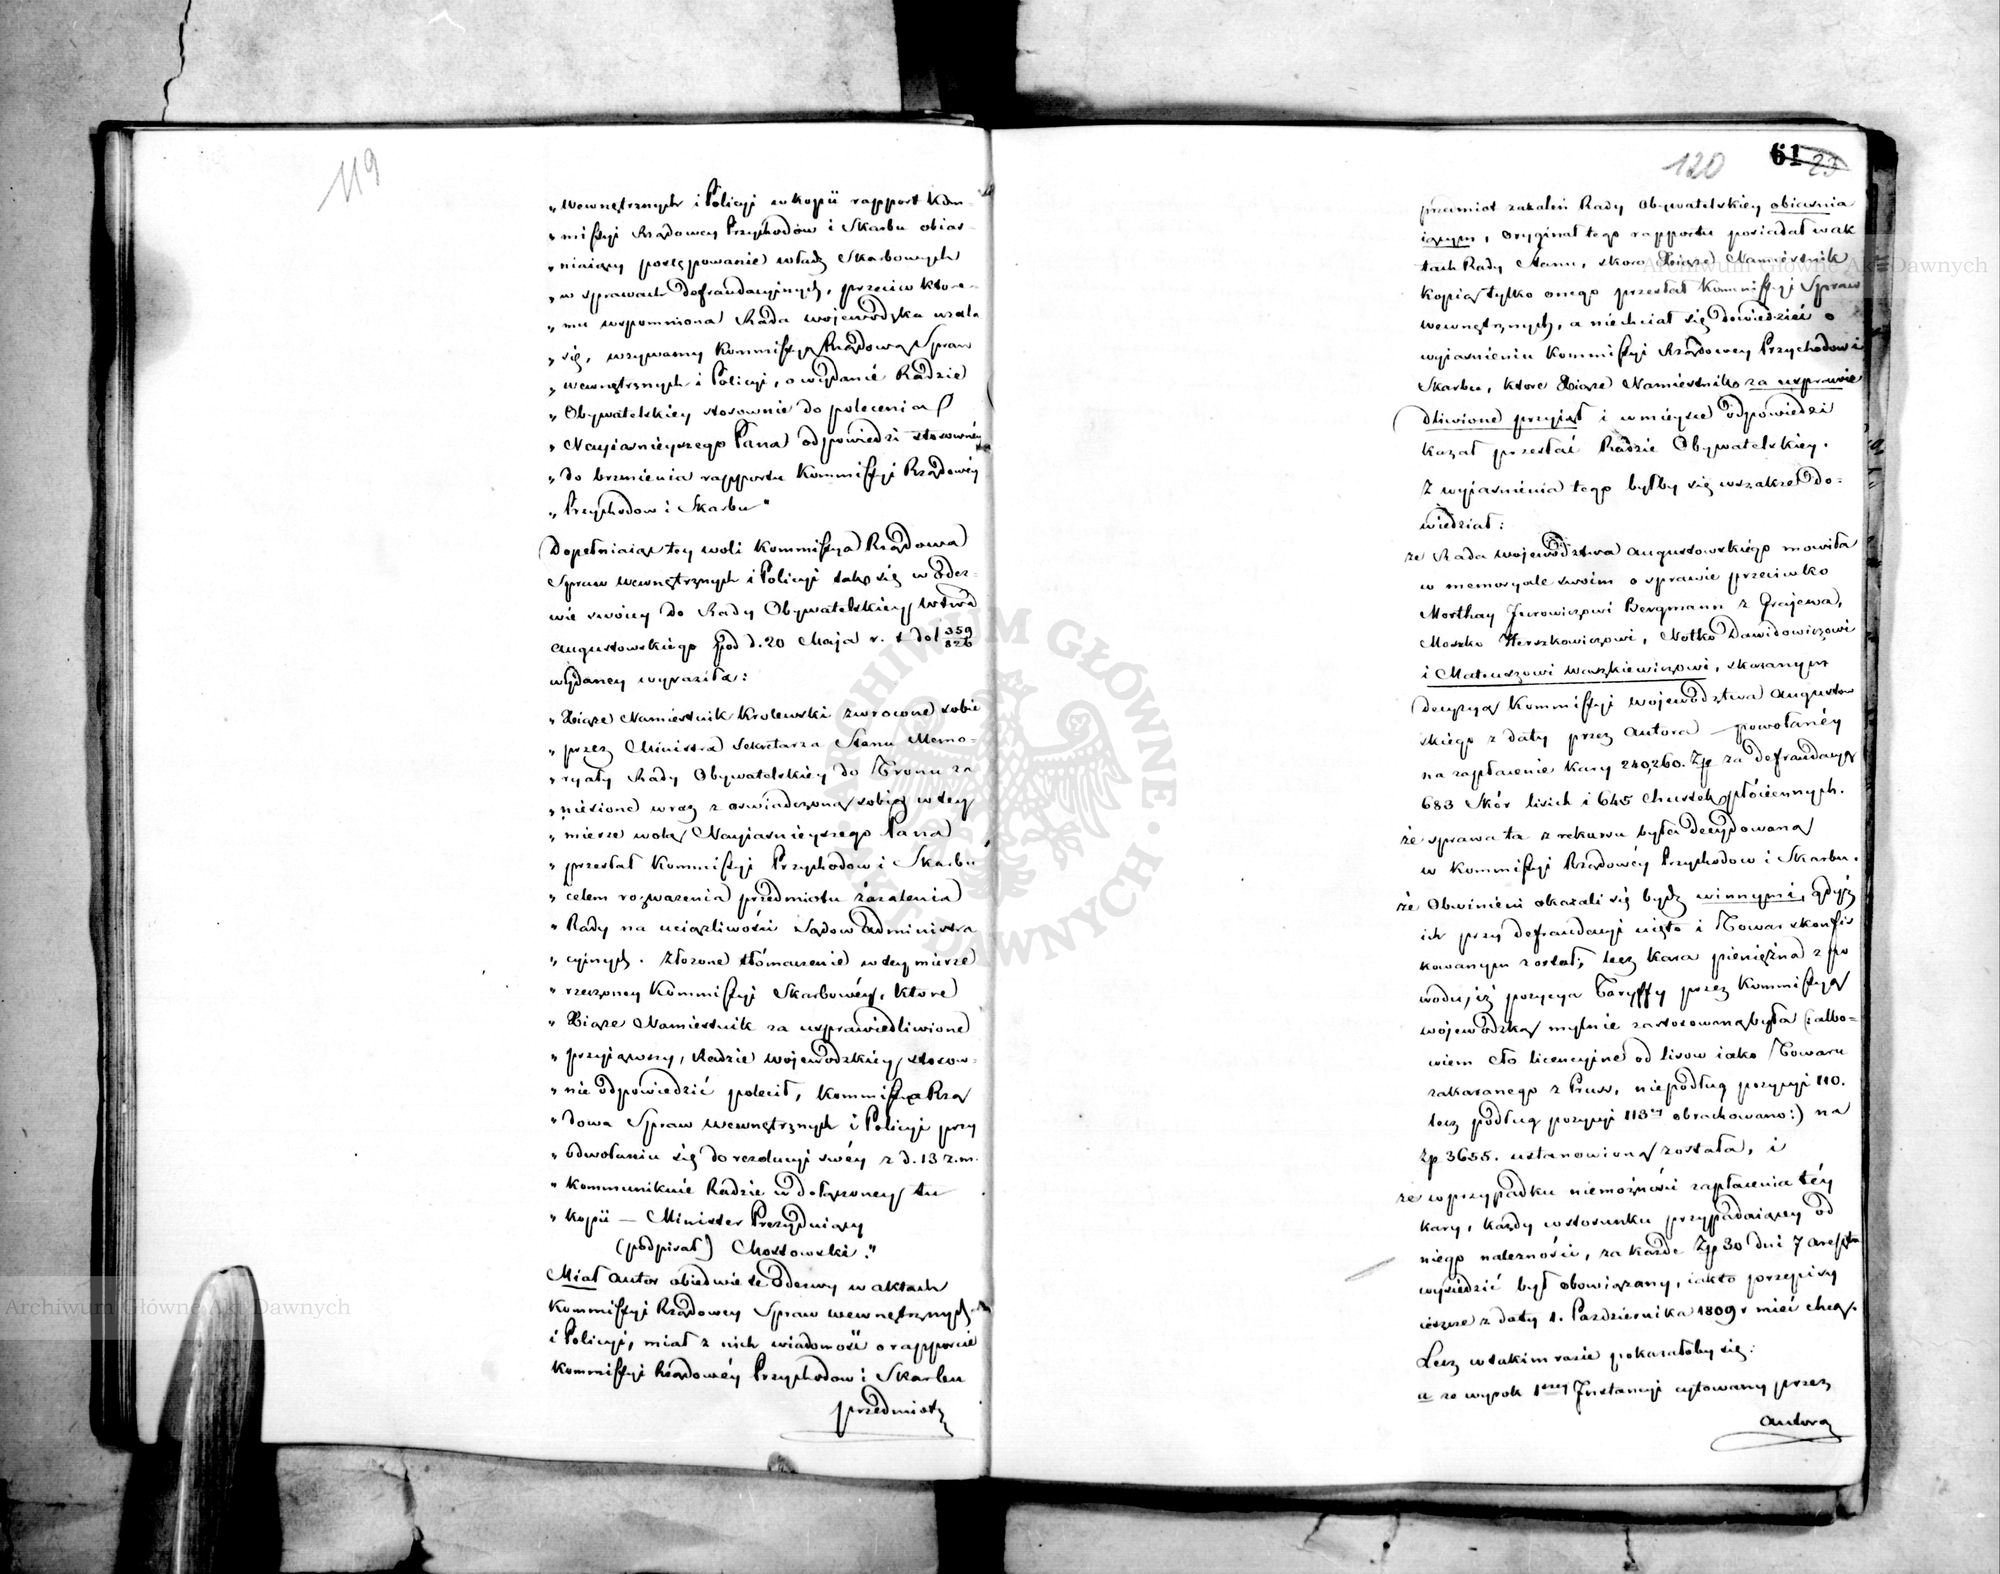 119
„ Wewnętrznych i Policyi w kopii rapport Kom-
„ missyi Rządowey Przychodów i Skarbu obias-
„ niaiący postępowanie władz Skarbowych
„ w sprawach defraudacyjnych, przeciw które-
„ mu wspomniona Rada woiewódzka użala
„ się, wzywamy Kommissyą Rządową Spraw
„ wewnętrznych i Policyi, o wydanie Radzie
„ Obywatelskiey stosownie do polecenia
„ Nayiasnieyszego Pana odpowiedzi stosownéy
„ do brzmienia rapportu Kommissyi Rządowéy
„ Przychodow i Skarbu"
Dopełniaiąc tey woli Kommissya Rządowa
Spraw wewnętrznych i Policyi tak się w odez-
wie swoiey do Rady Obywatelskiey Wtwa
Augustowskiego pod d. 20 Maja r. t do 359/826
wydaney wyraziła:
„ Xiąże Namiestnik Krolewski zwrocone sobie
„ przez Ministra Sekretarza Stanu Memo-
„ ryały Rady Obywatelskiey do Tronu za
„ niesione wraz z oswiadczoną sobie w tey
„ mierze wolą Nayiasnieyszego Pana
„ przesłał Kommissyi Przychodow i Skarbu
„ celem rozważenia przedmiotu żażalenia
„ Rady na uciążliwości Sądow Administra
„ cyinych. Złożone tłómaczenie w tey mierze
„ rzeczoney Kommissyi Skarbowéy, które
„ Xiąże Namiestnik za usprawiedliwione
„ przyiąwszy, Radzie woiewodzkiey stosow-
„ nie odpowiedzić polecił, Kommissya Rzą
„ dowa Spraw wewnętrznych i Policyi przy
„ odwołaniu się do rezolucyi swéy z d. 13 z. m.
„ kommunikuie Radzie w dołączoney tu
„ kopii — Minister Prezyduiący
(podpisał) Mostowski."
Miał autor obiedwie te odezwy w aktach
Kommissyi Rządowey Spraw wewnętrznych
i Policyi, miał z nich wiadomość o rapporcie
Kommissyi Rządowéy Przychodow i Skarbu
przedmiot
120
61
23
przedmiot zażaleń Rady Obywatelskiey obiasnia
iącym, oryginał tego rapportu posiadał w ak
tach Rady Stanu, skoro Xiąże Namiestnik
kopią tylko onego przesłał Kommissyi Spraw
wewnętrznych, a niechciał się dowiedzieć o
wyiasnieniu Kommissyi Rządowey Przychodow i
Skarbu, ktore Xiąże Namiestnik za usprawie
dliwione przyiął i w mieysce odpowiedzi
kazał przesłać Radzie Obywatelskiey.
Z wyiasnienia tego byłby się wszakże do-
wiedział:
że Rada województwa Augustowskiego mowiła
w memoryale swoim o sprawie przeciwko
Morthay Jurowiczowi Bergmann z Grajewa,
Moszko Herszkowiczowi, Notko Dawidowiczowi
i Mateuszowi Waszkiewiczowi, skazanym
decyzyą Kommissyi województwa Augustow
skiego z daty przez Autora powołanéy
na zapłacenie kary 240,260. Zp za defraudacyą
683 Skór lisich i 645 Chustek płóciennych.
że sprawa ta z rekursu była decydowaną
w Kommissyi Rządowéy Przychodow i Skarbu.
że Obwinieni okazali się bydź winnymi, gdyż
ich przy defraudacyi uięto i Towar skonfis
kowanym został; lecz kara pieniężna z po
wodu, iż pozycya Taryffy przez Kommissyą
wojewódzką mylnie zastosowaną była (: albo-
wiem cło licencyjne od lisow iako Towaru
zakazanego z Prus, niepodług pozycyi 110.
lecz podług pozycyi 113 obrachowano:) na
Zp 3655. ustanowioną została, i
że w przypadku niemożności zapłacenia téy
kary, każdy w stosunku przypadaiącey od
niego należności, za każde Zp 30 dni 7 aresztu
wysiedzić był obowiązany, iak to przepisy
ieszcze z daty 1. Pazdziernika 1809 r mieć chcą.
Lecz w takim razie pokazałoby się:
a że wyrok 1szey Instancyi cytowany przez
autora
Archiwum Główne Akt Dawnych
Archiwum Główne Akt Dawnych
ARCHIWUM GŁÓWNE AKT DAWNYCH